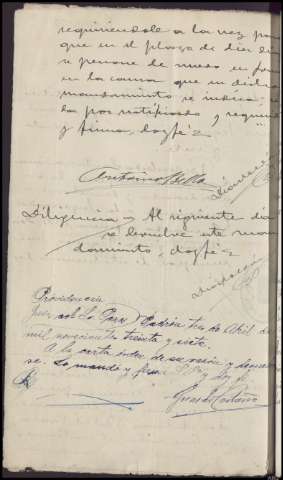 requiriendole a la vez para
que en el plazo de diez dia
se persone de nuevo en
en la causa que
mandamiento se indica;
da por notificado y requeri
y firma, doy fé =
Antonio Bella
Diligencia = Al siguiente dia
se devuelve este man
damiento, doy fé =
Providencia
Juez Sr. Lo Pera Padrón tres de Abril de
mil novecientos treinta y siete.
A la carta orden de su razón y
se. Lo mandó y firma S.Sª y doy fé